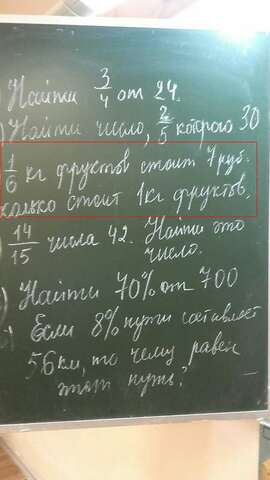 Найти 3/4 от 24.
) Найти число, 2/5 которого 30
1/6 кг фруктов стоит 7 руб.
колько стоит 1кг фруктов.
14/15 числа 42. Найти это
число.
) Найти 70% от 700
Если 8% пути составляет
56км, то чему равен
этот путь?